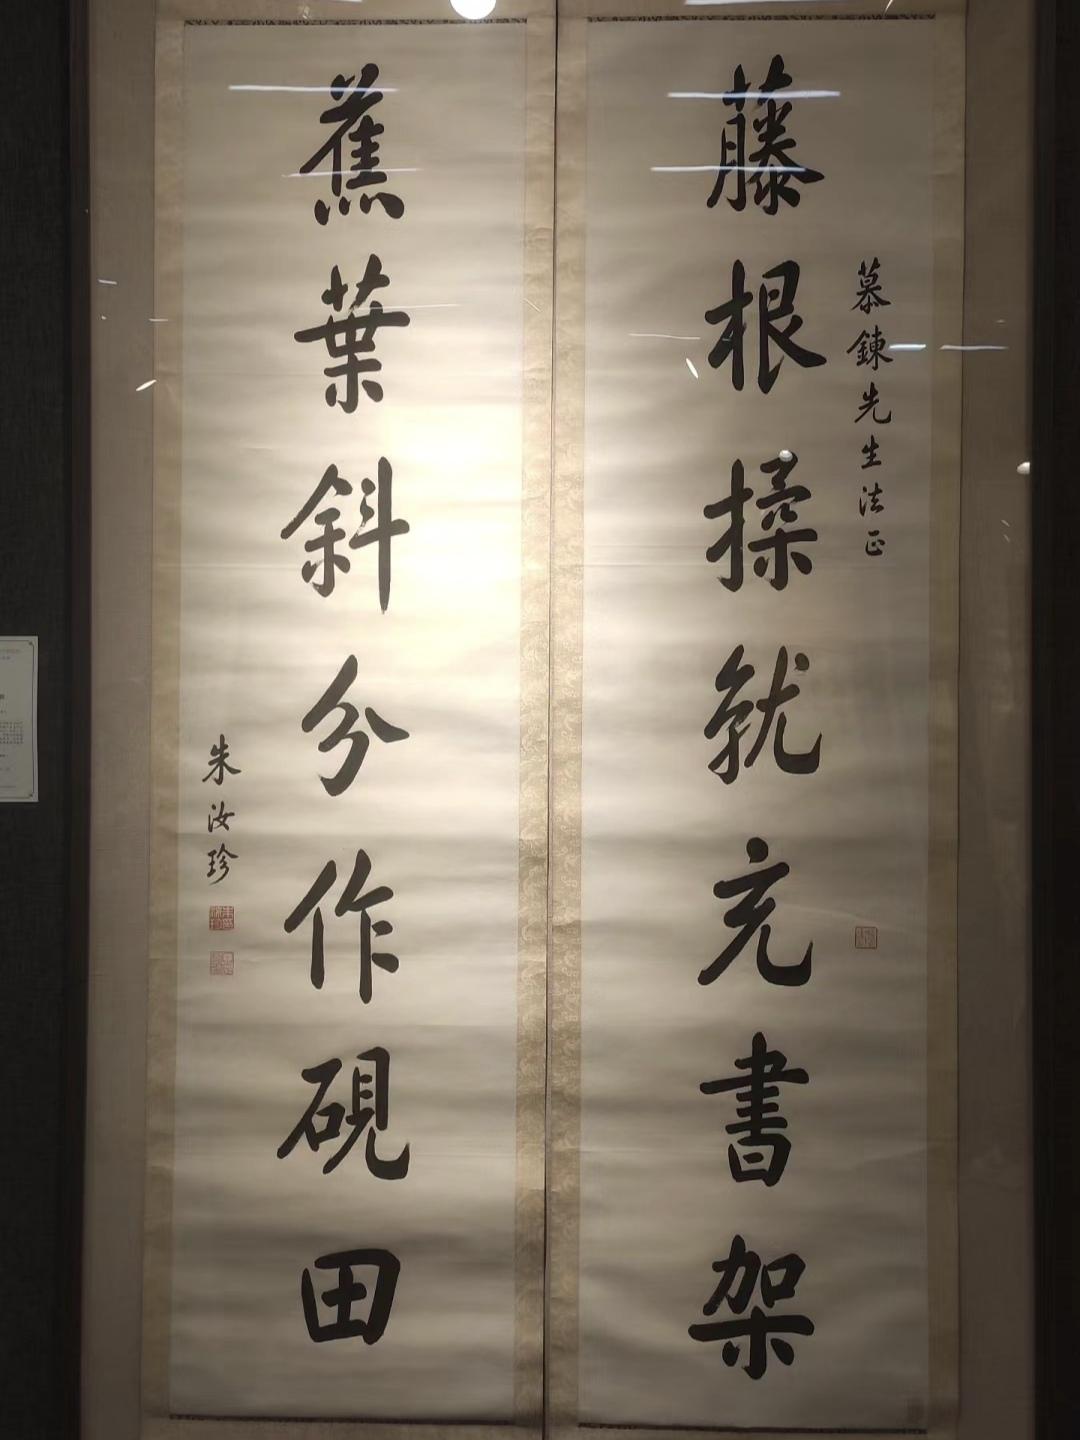 藤根揉就充書架
慕鍊先生法正
蕉葉斜分作硯田
朱汝珍